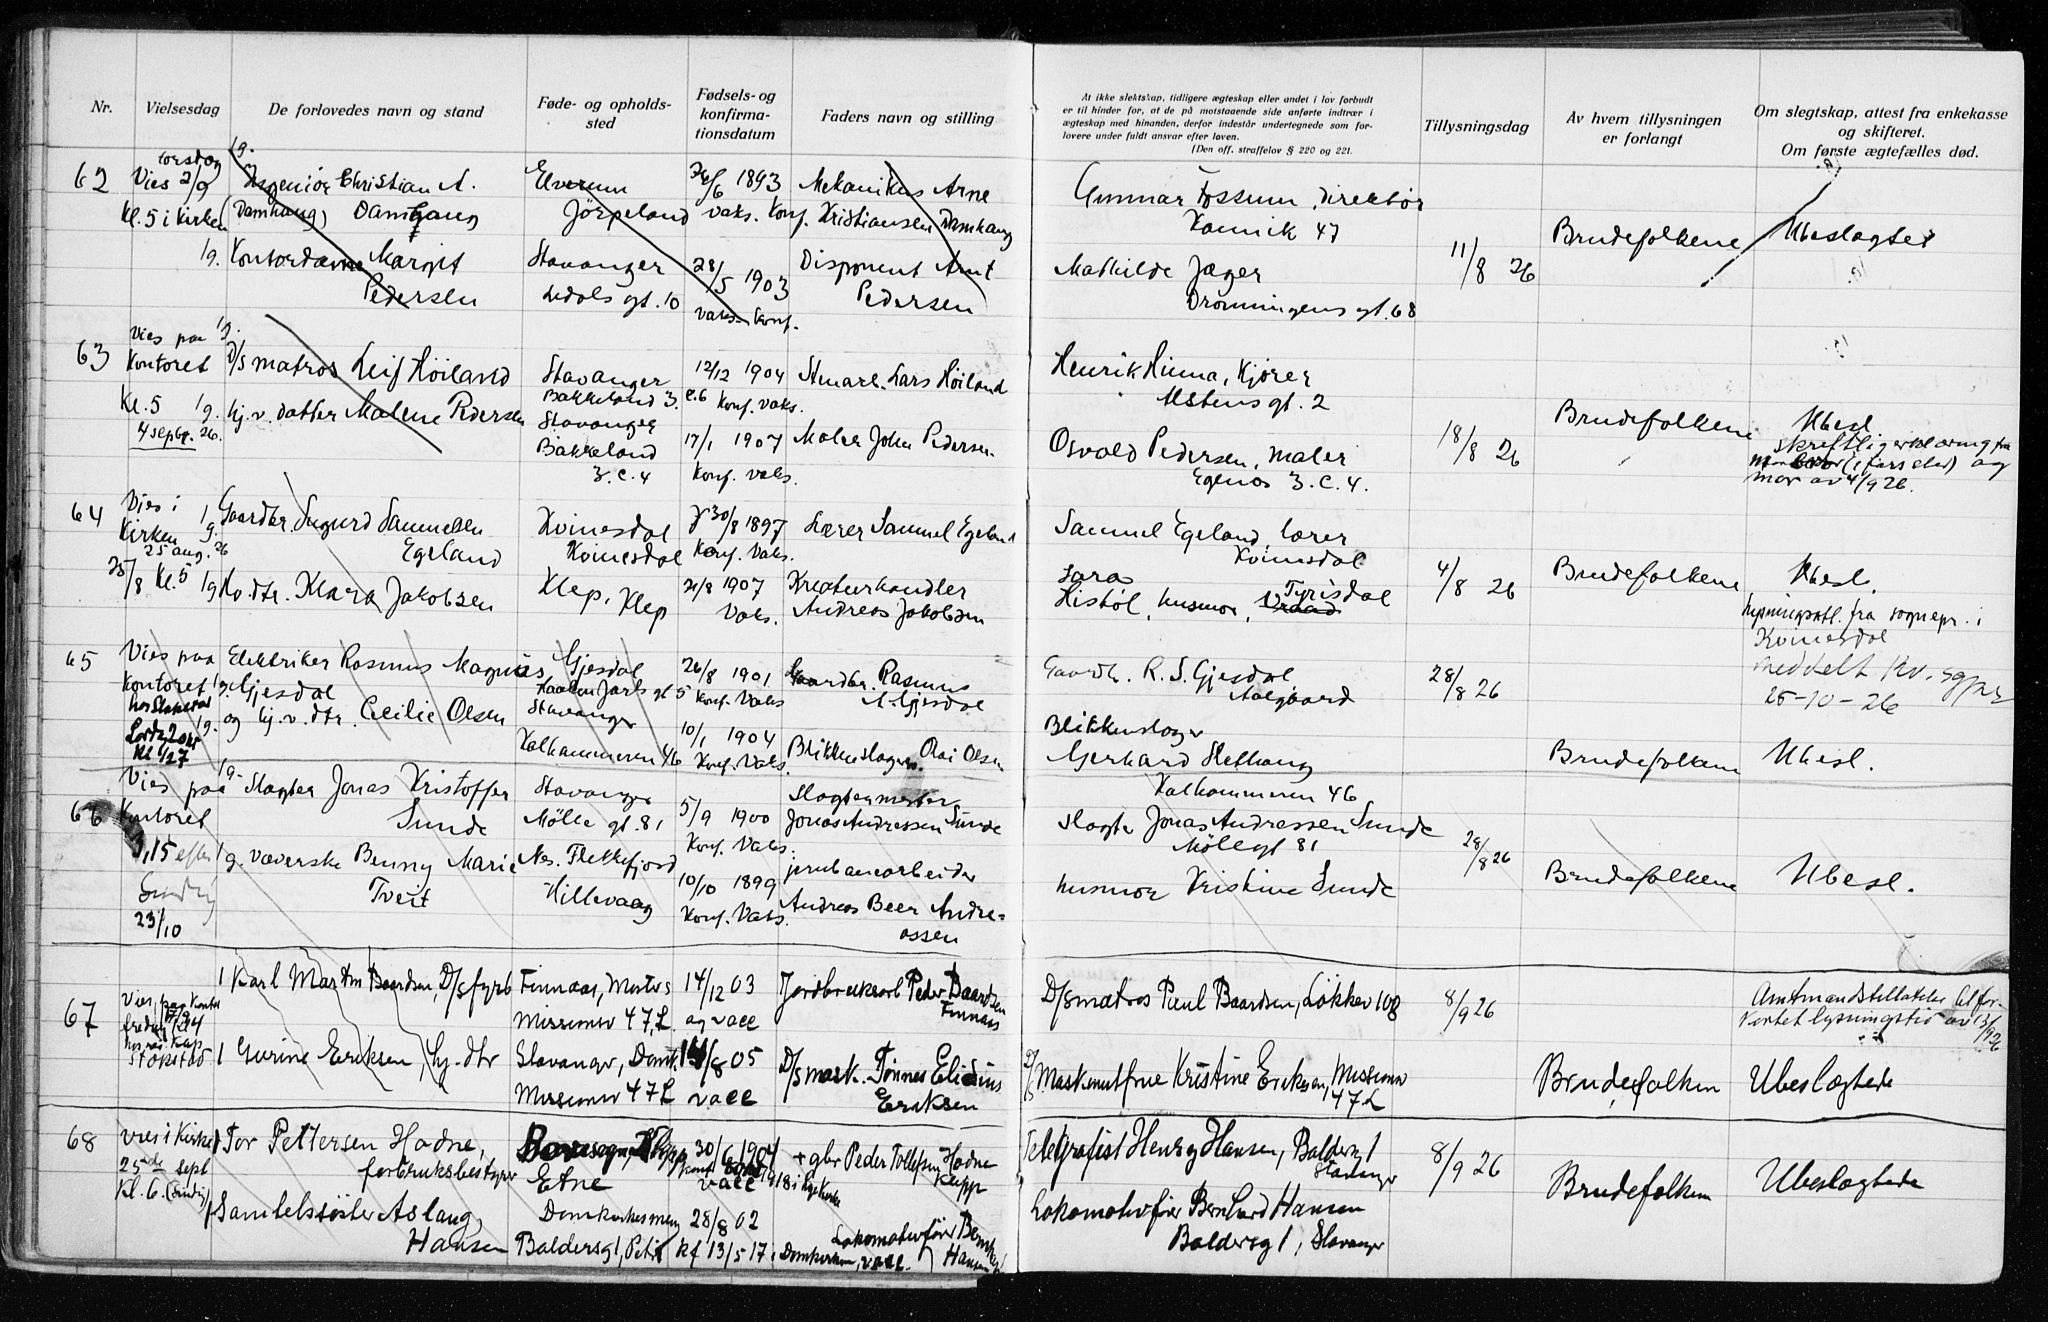 Nr.
Vielsesdag
De forlovedes navn og stand
Føde- og opholds-
sted
Fødsels- og
konfirma-
tionsdatum
Faders navn og stilling
At ikke slektskap, tidligere ægteskap eller andet i lov forbudt
er til hinder for, at de på motstaaende side anførte indtrær i
ægteskap med hinanden, derfor indestår undertegnede som for-
lovere under fuldt ansvar efter loven.
(Den off. straffelov § 220 og 221.
Tillysningsdag
Av hvem tillysningen
er forlangt
Om slegtskap, attest fra enkekasse
og skifteret.
Om første ægtefælles død.
62
torsdag
Vies 2/9
Kl. 5 i Kirken
1g.
Ingeniør Christian A.
(Damhaug) Damhaug
Elverum
Jørpeland
24/6 1893
Vaks. Konf.
Mekanikus Arne
Kristiansen Damhaug
Gunnar Fossum, direktør
Kannik 47
1g. Kontordame Margit
Pedersen
Stavanger
Ledals gt. 10
28/5 1903
Vaks. Konf.
Disponent Arnt
Pedersen
Mathilde Jæger
Dronningens gt. 68
11/8 26
Brudefolkene
Ubeslagtet
63
Vies paa
Kontoret
Kl. 5
4 septbr. 26.
1g.
D/S matros Leif Höiland
Stavanger
Bakkeland 3.
12/12 1904
Konf. Vaks.
Lars Höiland
Henrik Hinna, Kjører
gt. 2
1g. hj. v. datter Malene Pedersen
Stavanger
Bakkeland
3. C. 4
17/1 1907
Konf. Vaks.
Maler John Pedersen
Osvald Pedersen, maler
Egenes 3. C. 4.
18/8 26
Brudefolkene
Ubesl
Skriftlig erklæring fra
(i fars sted) og
mor av 4/9 26.
64
Vies i
Kirken
25 aug. 26
25/8 Kl. 5
1g.
Gaardbr. Sigurd Samuelsen
Egeland
Kvinesdal
Kvinesdal
30/8 1897
Konf. Vaks.
Lærer Samuel Egeland
Samuel Egeland, lærer
Kvinesdal
1g. Ho. dtr. Klara Jakobsen
Klep, Klep
21/8 1907
Vaks.
Kreaturhandler
Andreas Jakobsen
Sara
Histöl, husmor, Tyrisdal
4/8 26
Brudefolkene
Ubesl.
lysningsatt. fra sognepr. i
Kvinesdal
meddelt Kv. sgpr
25-10-26
65
Vies paa
Kontoret
hos Stokstad
Kl 1/27
1g.
Elektriker Rasmus Magnus
Gjesdal
Gjesdal
Haakon Jarls gt 5
26/8 1901
Konf. Vaks
Gaardbr. Rasmus
Gjesdal
Gaardb. R. S. Gjesdal
Aalgaard
28/8 26
1g.
og hj. v. dtr. Cecilie Olsen
Stavanger
Kalhammeren 46
10/1 1904
Konf. Vaks.
Blikkenslager Olai Olsen
Blikkenslager
Gerhard Hethaug
Kalhammeren 46
Brudefolkene
Ubesl.
66
Vies paa
Kontoret
23/10
1g. Slagter Jonas Kristoffer
Sunde
Stavanger
Mölle gt. 81
5/9 1900
Konf. Vaks.
Slagtermester
Jonas Andressen Sunde
slagter Jonas Andressen Sunde
Möllegt 81
1g. væverske Benny Marie
Tveit
Nes. Flekkefjord
Hillevaag
10/10 1899
Konf. Vaks.
jernbanearbeider
Andreas Beer Andre-
assen
husmor Kristine Sunde
28/8 26
Brudefolkene
Ubesl.
67
Vies paa Kontor
fredag 17/9
hos res. kap.
Stokstad
1 Karl Martin Baardsen, D/S fyrb
Finnaas, Mosters
Missionsv 47, L.
14/12 03
og vacc
Jordbruksarb Peder Baardsen
Finnaas
D/S matros Paul Baardsen, Løkkev 108
8/9 26
Amtmandstillatelse til for-
kortet lysningstid av 13/9 26
1 Gurine Eriksen, hj. dtr
Stavanger, Domk.
Missionsv 47 L
14/8 05
vacc
D/S mask. Tønnes Elidius
Eriksen
D/S Maskinistfrue Kristine Eriksen, Missionsv
47 L
Brudefolken
Ubeslægtede
68
Vies i Kirken
25de sept
Kl. 6.
1 Tor Pettersen Hodne,
forbruksbestyrer
Etne
30/6 1904
vacc
+ gbr Peder Tollefsen Hodne
Klepp
Telegrafist Henry Hansen, Baldersg 1
Stavanger
8/9 26
1 Samlelssöster Aslaug
Hansen
Domkirkesmenig
Baldersg 1, Petri
28/8 02
kf 13/5 17 i Domkirken, vacc.
Lokomotivfører Bernhard
Hansen
Lokomotivfører Bernhard Hansen
Baldersg 1, Stavanger
Brudefolken
Ubeslægtede